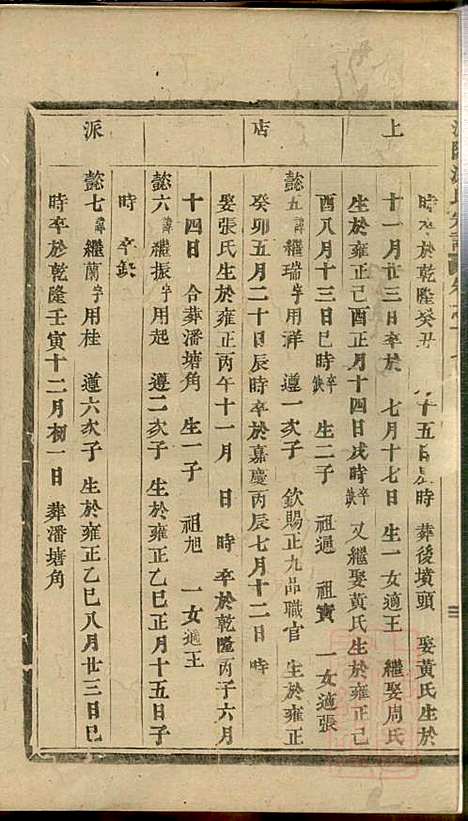 時卒於乾隆癸丑 十五日 時 葬後墳頭 娶黃氏生於
十一月廿三日卒於 七月十七日 生一女適王 繼娶周氏
生於雍正己酉正月十四日戌時卒缺 又繼娶黃氏生於雍正己
酉八月十三日巳時卒缺 生二子 祖通 祖寳 一女適張
懿五諱繼瑞字用祥 遵一次子 欽賜正九品職官 生於雍正
癸卯五月二十日辰時卒於嘉慶丙辰七月十二日 時
娶張氏生於雍正丙午十一月 日 時 卒於乾隆丙子六月
十四日 合葬潘塘角 生一子 祖旭 一女適王
懿六諱繼振字用起 遵二次子 生於雍正乙巳正月十五日子
時 卒缺
懿七諱繼蘭字用桂 遵六次子 生於雍正乙巳八月廿三日巳
時卒於乾隆壬寅十二月初一日 葬潘塘角
上
店
派